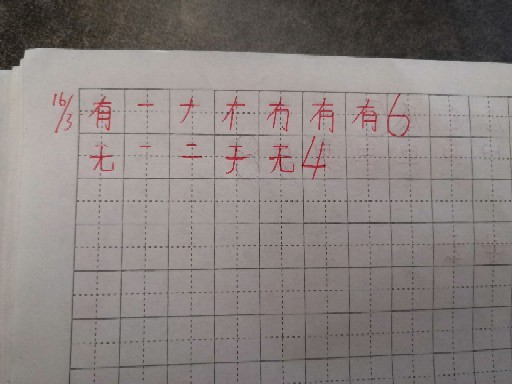 16/3 有 一 ナ 冇 有 有 6
无 一 二 于 无 4